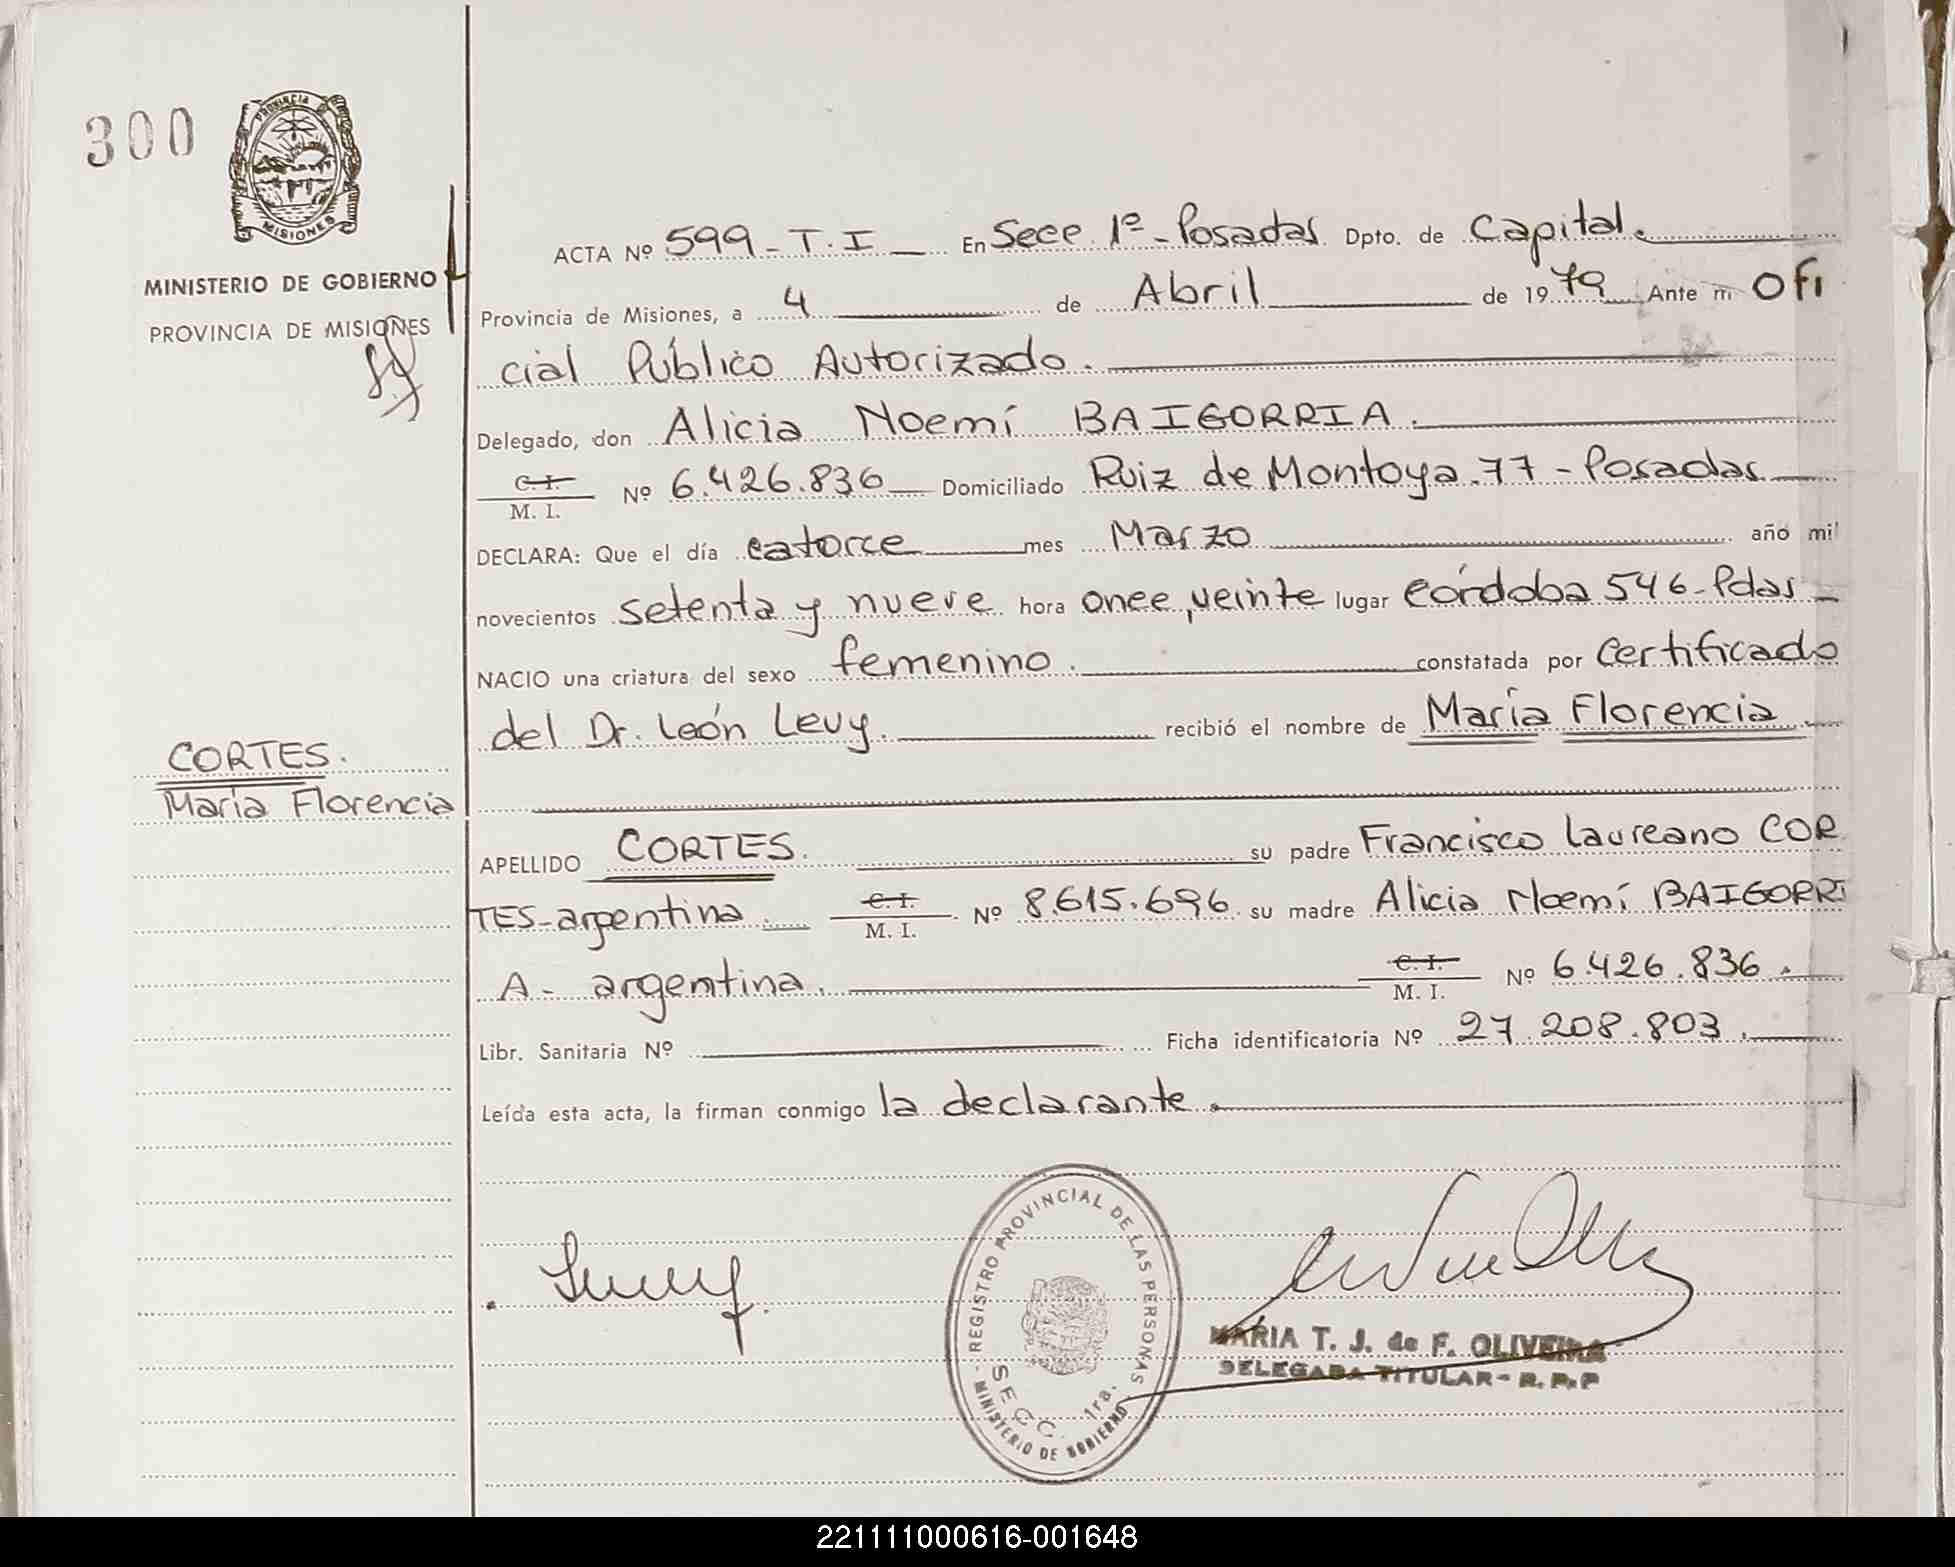 300
PROVINCIA
MISIONES
MINISTERIO DE GOBIERNO
PROVINCIA DE MISIONES
ACTA Nº 599 - T. I En Secc. 1ª - Posadas Dpto. de Capital.
Provincia de Misiones, a 4 de Abril de 1979 Ante mí Ofi
cial Público Autorizado.
Delegado, don Alicia Noemí BAIGORRIA.
C. I.
M. I. Nº 6.426.836 Domiciliado Ruiz de Montoya 77 - Posadas
DECLARA: Que el día catorce mes Marzo año mil
novecientos setenta y nueve hora once, veinte lugar Córdoba 546 - Pdas
NACIO una criatura del sexo femenino. constatada por Certificado
del Dr. León Levy. recibió el nombre de María Florencia
CORTES.
María Florencia
APELLIDO CORTES. su padre Francisco Laureano COR
TES - argentina. C. I. M. I. Nº 8.615.696 su madre Alicia Noemí BAIGORRI
A - argentina. C. I. M. I. Nº 6.426.836.
Libr. Sanitaria Nº Ficha identificatoria Nº 27.208.803.
Leída esta acta, la firman conmigo la declarante.
- REGISTRO PROVINCIAL DE LAS PERSONAS -
MINISTERIO DE GOBIERNO
SECC. 1ra.
MARIA T. J. de F. OLIVEIRA
DELEGADA TITULAR - R. P. P
221111000616-001648